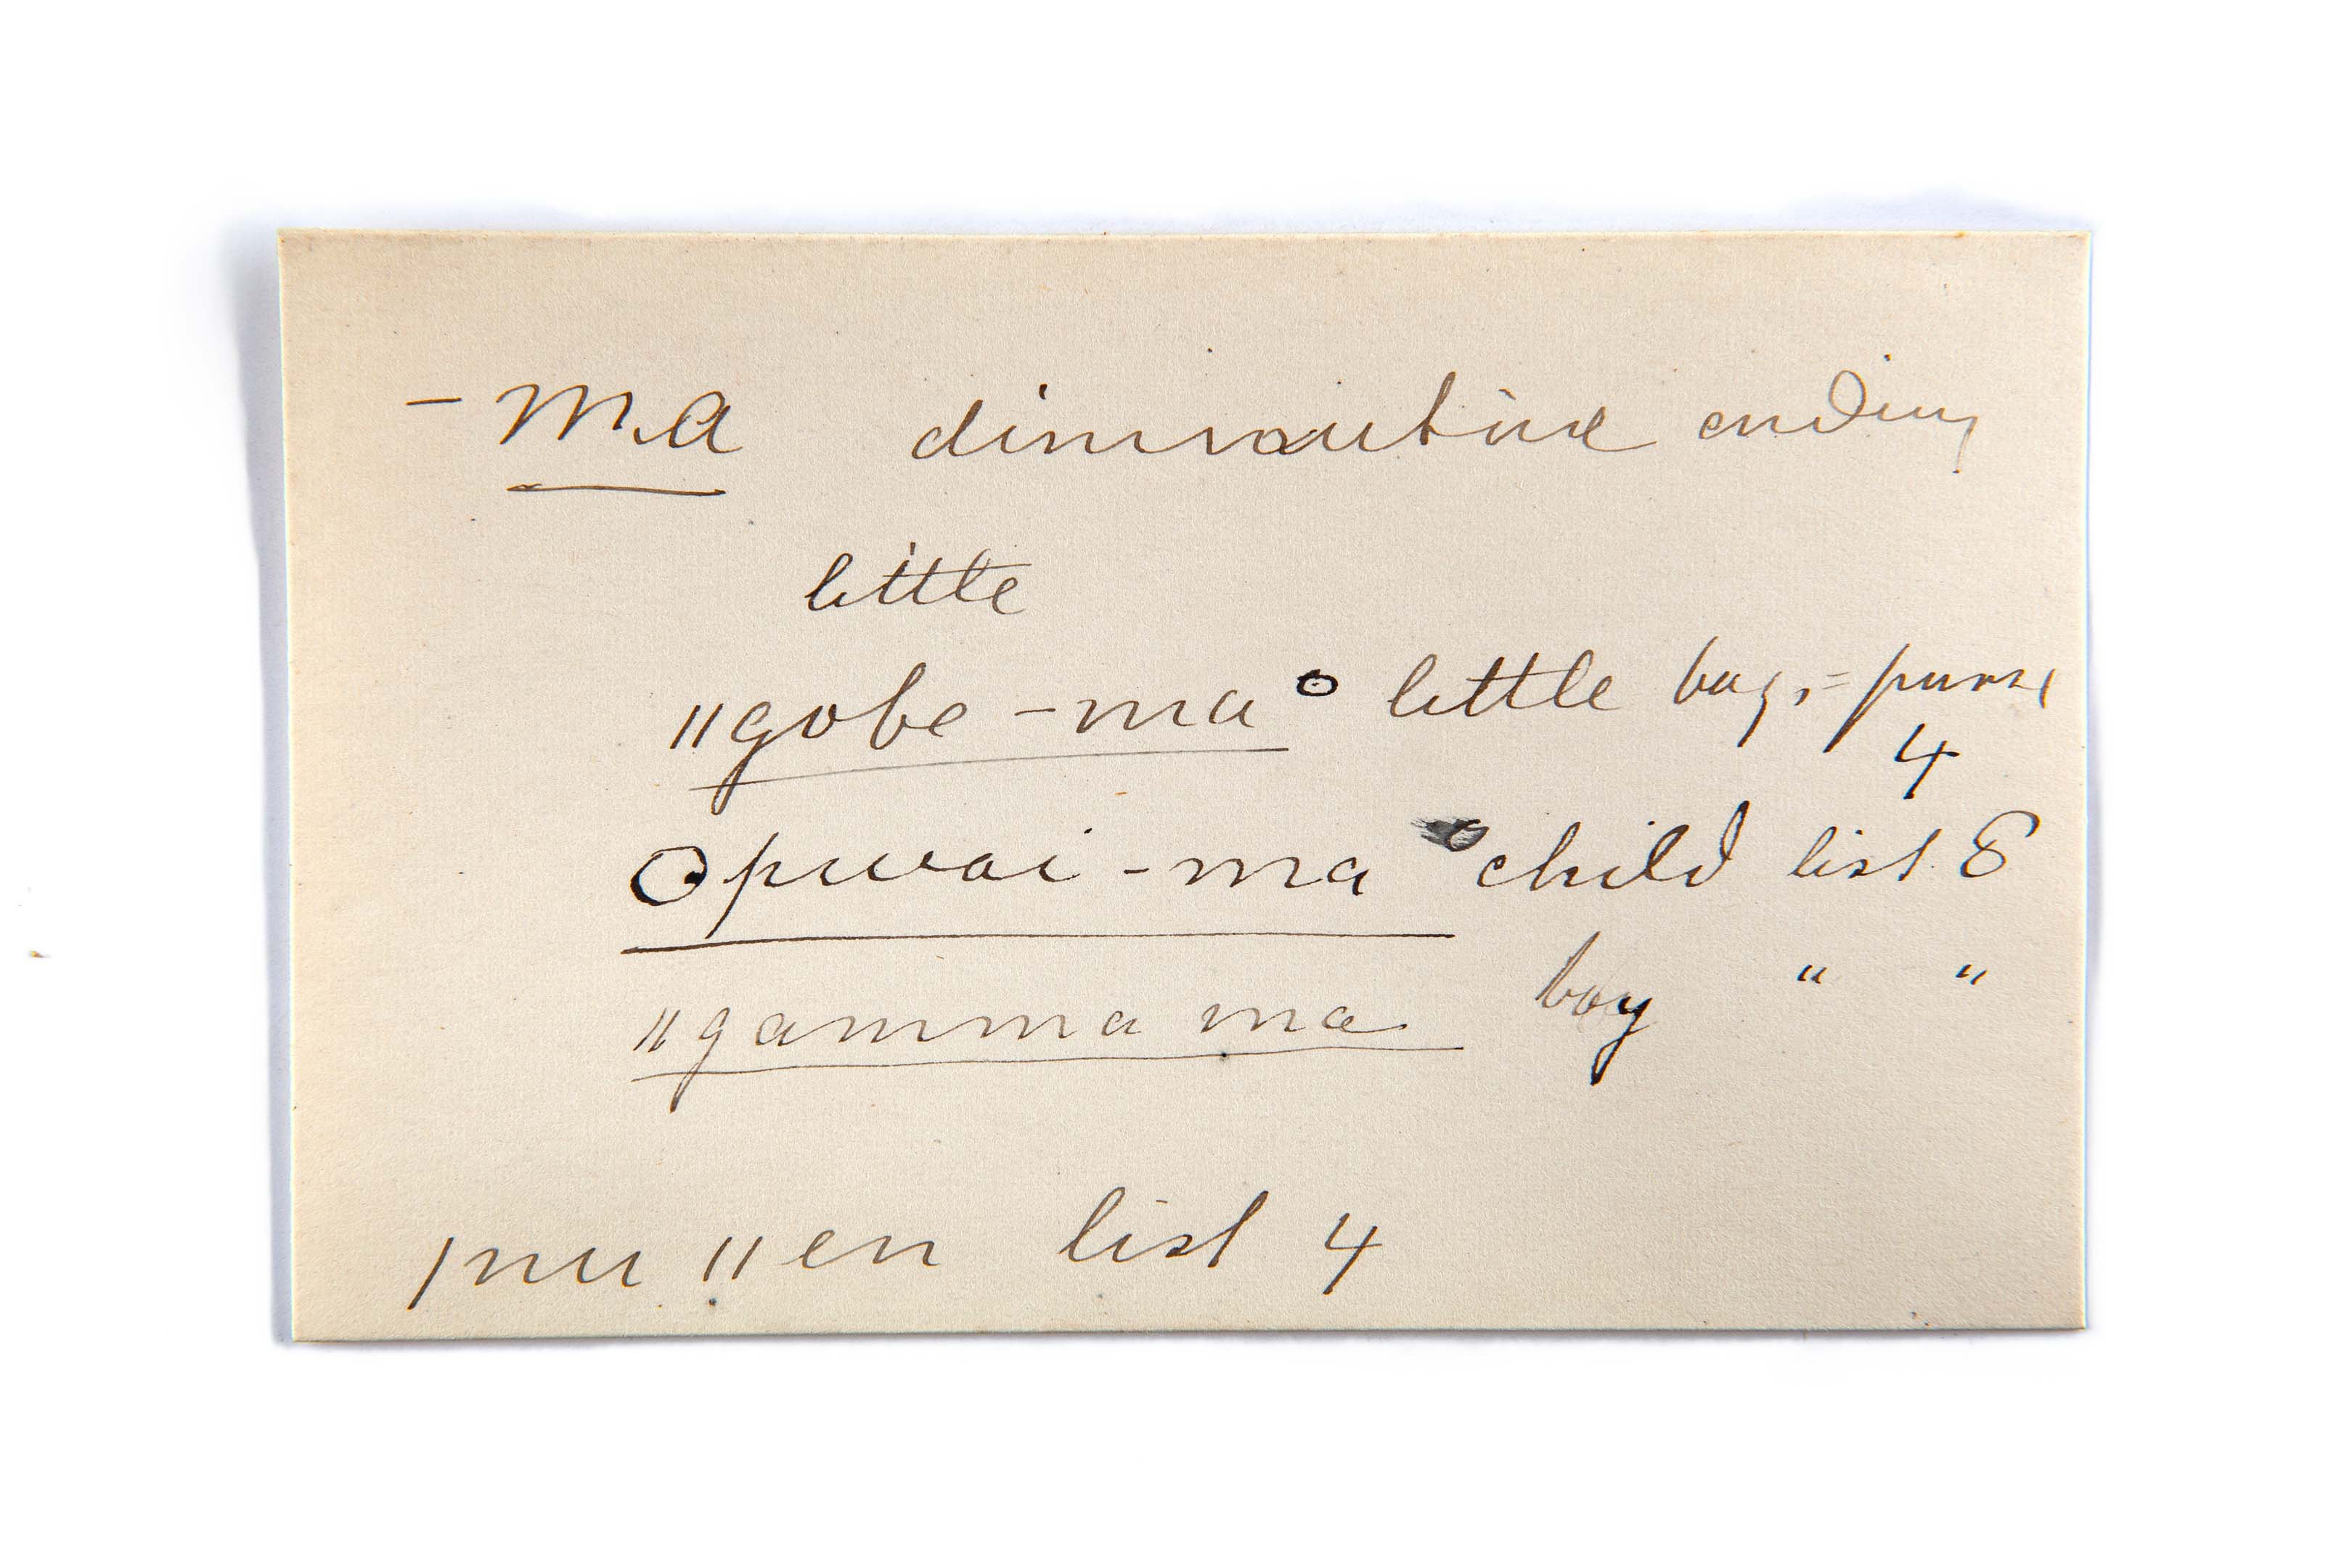 - ma diminutive ending
little
"gobe - ma° little bag, = purse
4
Opwai - ma ° child list 8
"gamma ma boy " "
/nu "en list 4